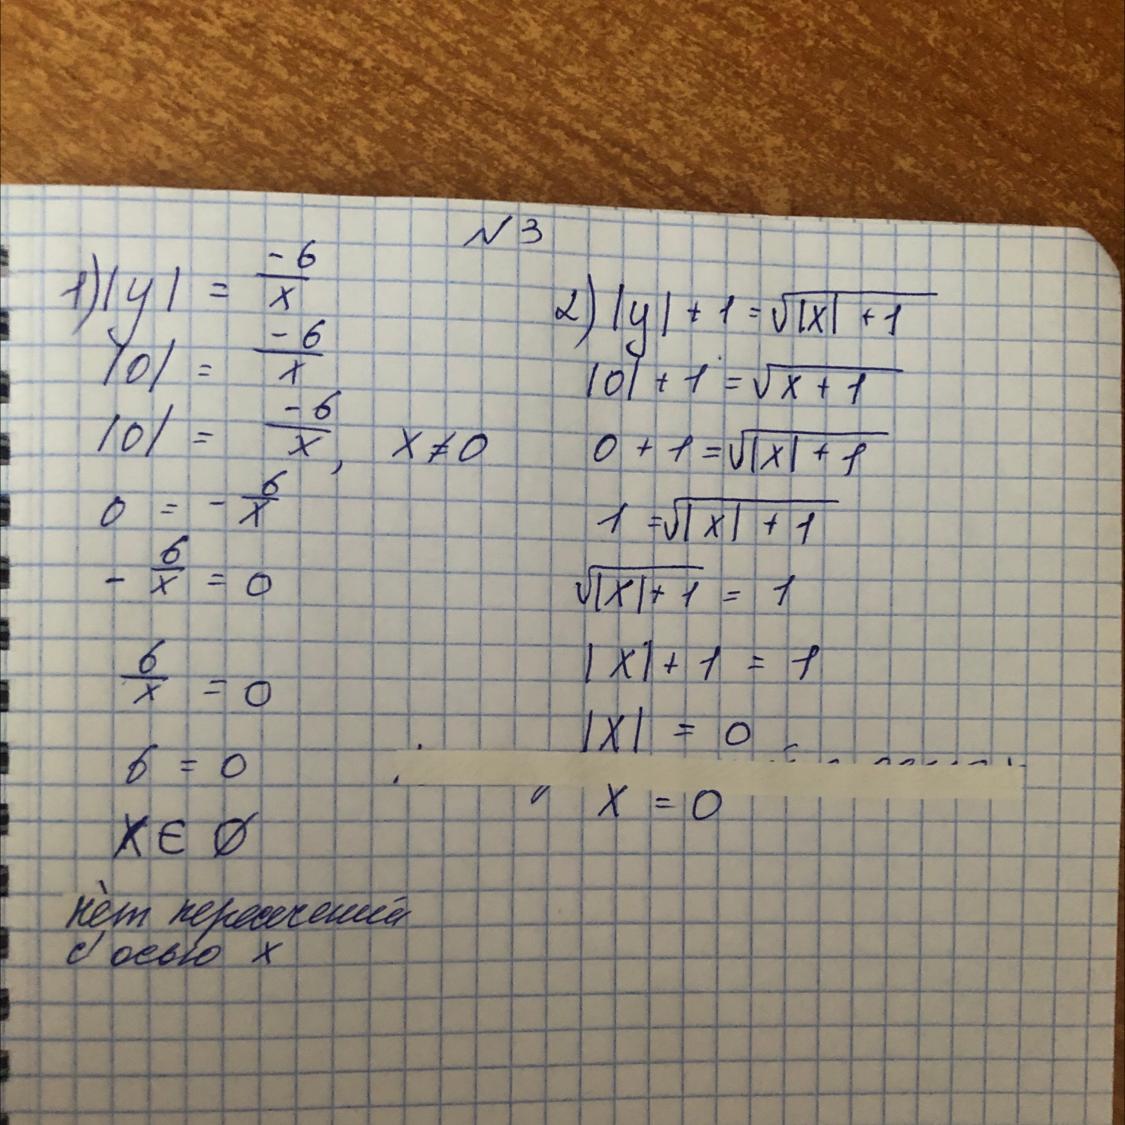 N 3
1) |y| = -6/x
|0| = -6/x
|0| = -6/x, x ≠ 0
0 = - 6/x
- 6/x = 0
6/x = 0
6 = 0
x ∈ Ø
нет пересечений
с осью x
2) |y| + 1 = √(|x| + 1)
|0| + 1 = √(x + 1)
0 + 1 = √(|x| + 1)
1 = √(|x| + 1)
√(|x| + 1) = 1
|x| + 1 = 1
|x| = 0
x = 0